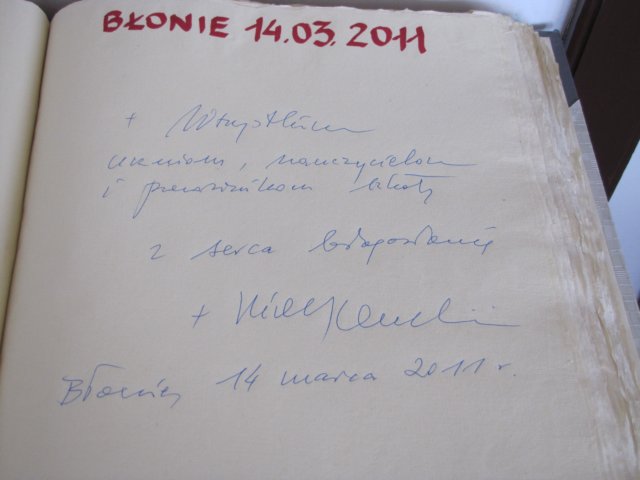 BŁONIE 14.03.2011
+ Wszystkim
uczniom, nauczycielom
i pracownikom szkoły
z serca błogosławię
+
Błonie, 14 marca 2011 r.